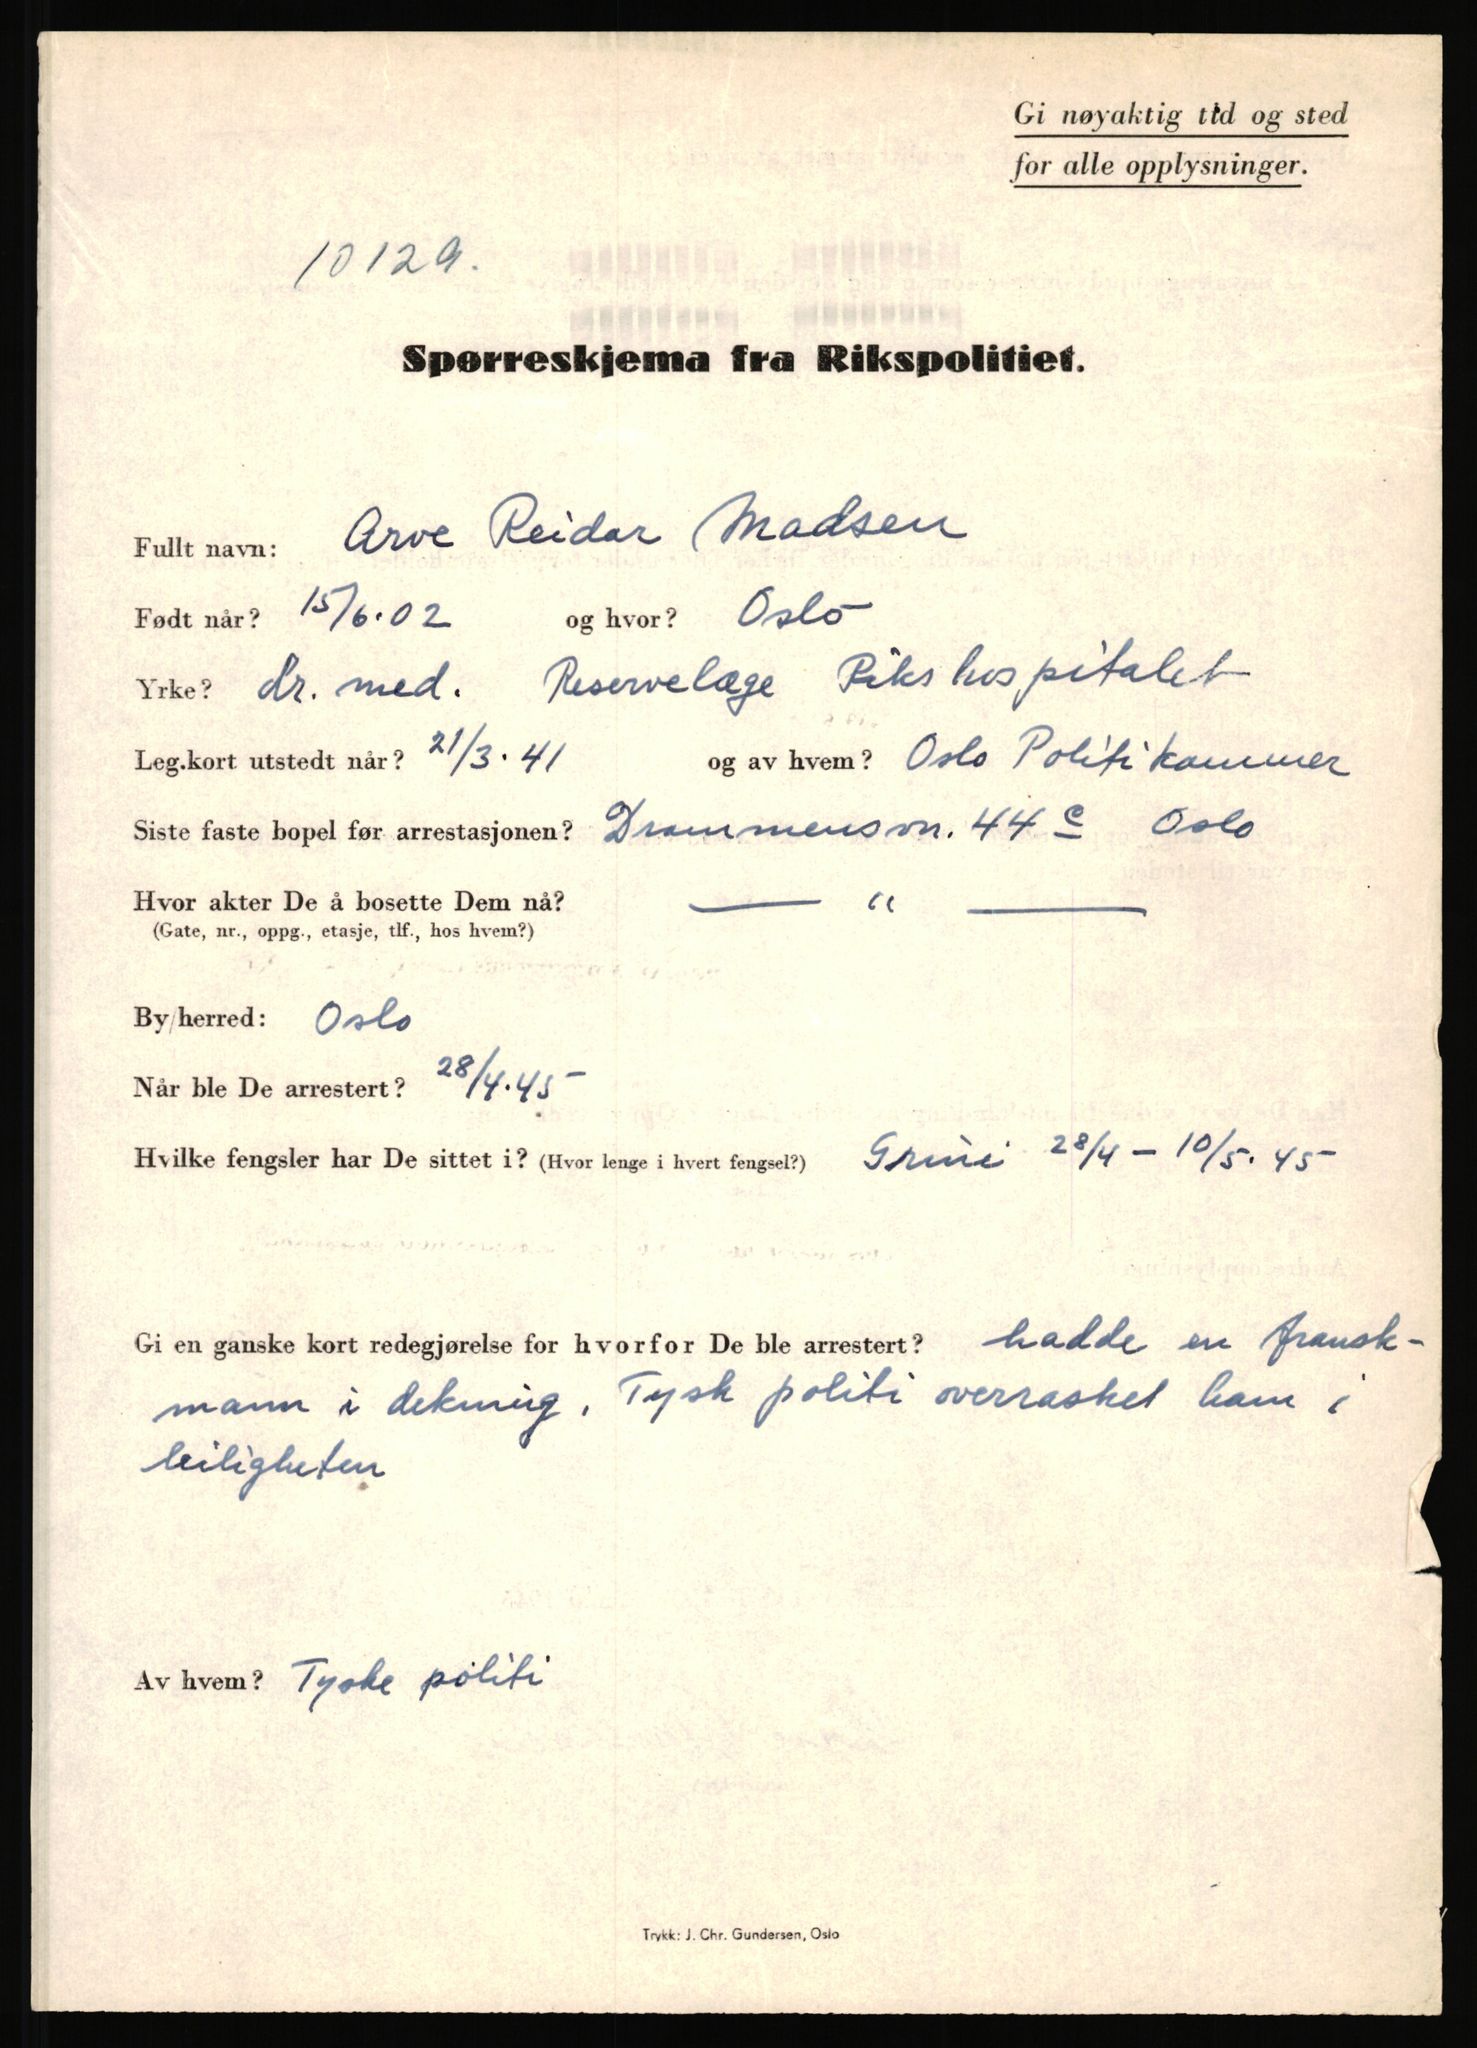 Gi nøyaktig tid og sted
for alle opplysninger.
10129.
Spørreskjema fra Rikspolitiet.
Fullt navn: Arve Reidar Madsen
Født når? 15/6.02 og hvor? Oslo
Yrke? dr. med. Reservelæge Rikshospitalet
Leg.kort utstedt når? 21/3.41 og av hvem? Oslo Politikammer
Siste faste bopel før arrestasjonen? Drammensvn. 44 c Oslo
Hvor akter De å bosette Dem nå? — " —
(Gate, nr., oppg., etasje, tlf., hos hvem?)
By/herred: Oslo
Når ble De arrestert? 28/4.45
Hvilke fengsler har De sittet i? (Hvor lenge i hvert fengsel?) Grini 28/4 – 10/5.45
Gi en ganske kort redegjørelse for hvorfor De ble arrestert? hadde en fransk-
mann i dekning. Tysk politi overrasket ham i
leiligheten
Av hvem? Tyske politi
Trykk: J. Chr. Gundersen, Oslo